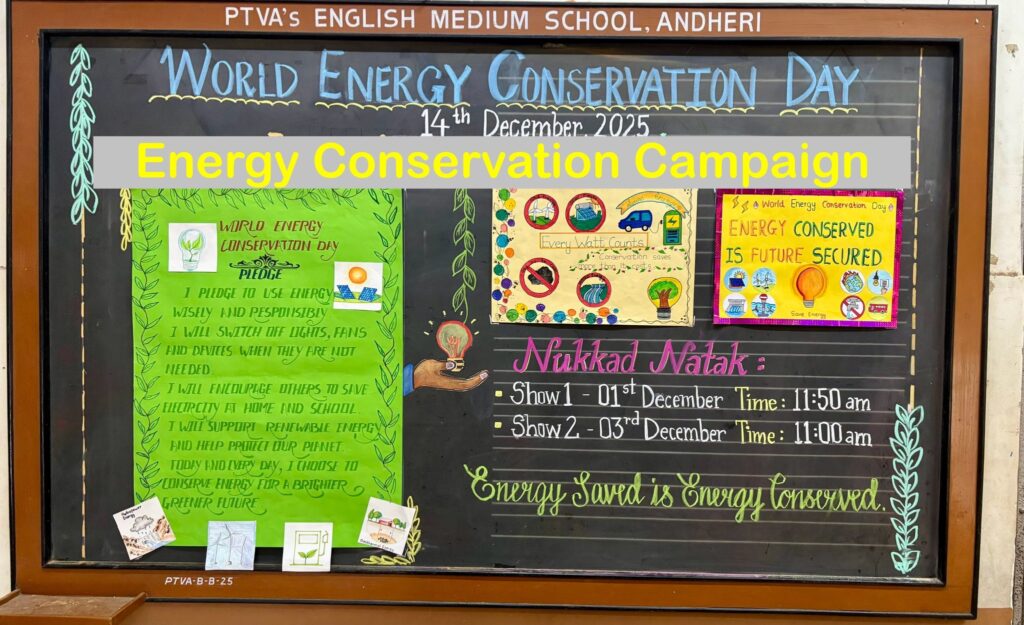 PTVA's ENGLISH MEDIUM SCHOOL, ANDHERI
WORLD ENERGY CONSERVATION DAY
14th December, 2025
Energy Conservation Campaign
WORLD ENERGY
CONSERVATION DAY
PLEDGE
I PLEDGE TO USE ENERGY
WISELY AND RESPONSIBLY
I WILL SWITCH OFF LIGHTS, FANS
AND DEVICES WHEN THEY ARE NOT
NEEDED.
I WILL ENCOURAGE OTHERS TO SAVE
ELECTRICITY AT HOME AND SCHOOL.
I WILL SUPPORT RENEWABLE ENERGY
AND HELP PROTECT OUR PLANET.
TODAY AND EVERY DAY, I CHOOSE TO
CONSERVE ENERGY FOR A BRIGHTER
GREENER FUTURE
Every Watt Counts
Conservation saves
World Energy Conservation Day
ENERGY CONSERVED
IS FUTURE SECURED
Save Energy
Nukkad Natak :
Show 1 - 01st December Time : 11:50 am
Show 2 - 03rd December Time : 11:00 am
Energy Saved is Energy Conserved.
PTVA-B-B-25